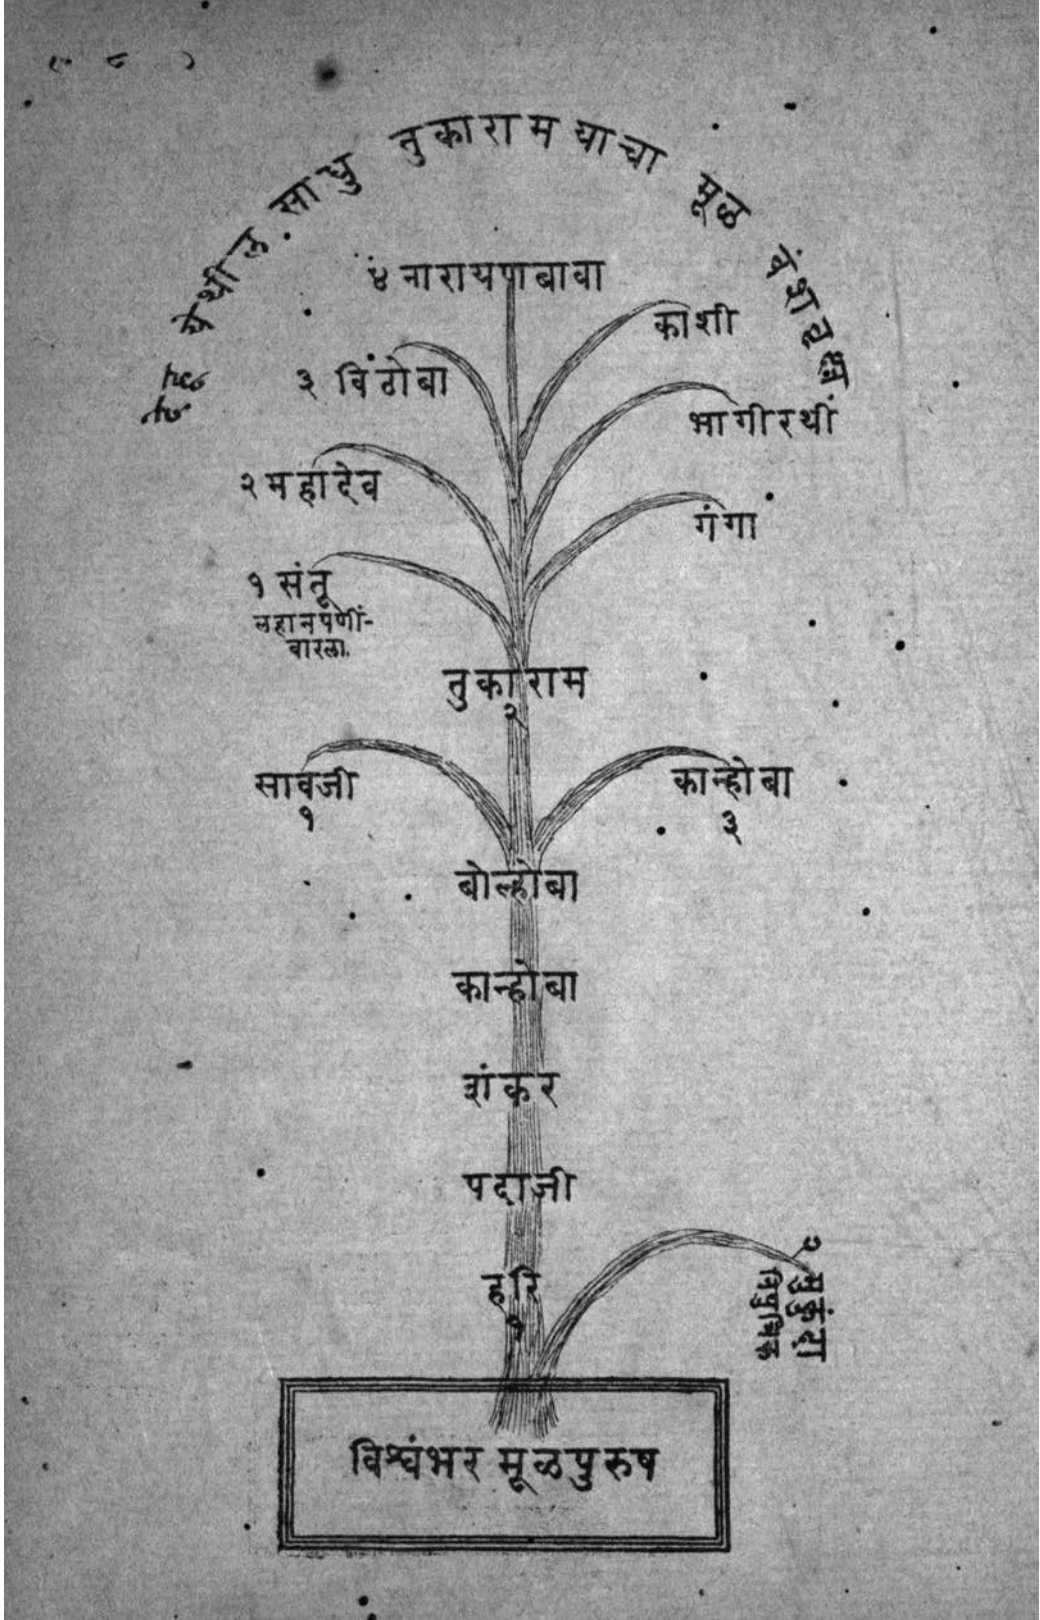 देहू येथील साधु तुकाराम याचा मूळ वंशवृक्ष
४ नारायणबावा
काशी
३ विठोबा
भागीरथी
२ महादेव
गंगा
१ संतू
लहानपणीं-
वारला.
तुकाराम
२
सावजी
१
कान्होबा
३
बोल्होबा
कान्होबा
शंकर
पदाजी
हरि
१
२
मुकुंदा
निपुत्रिक
विश्वंभर मूळपुरुष